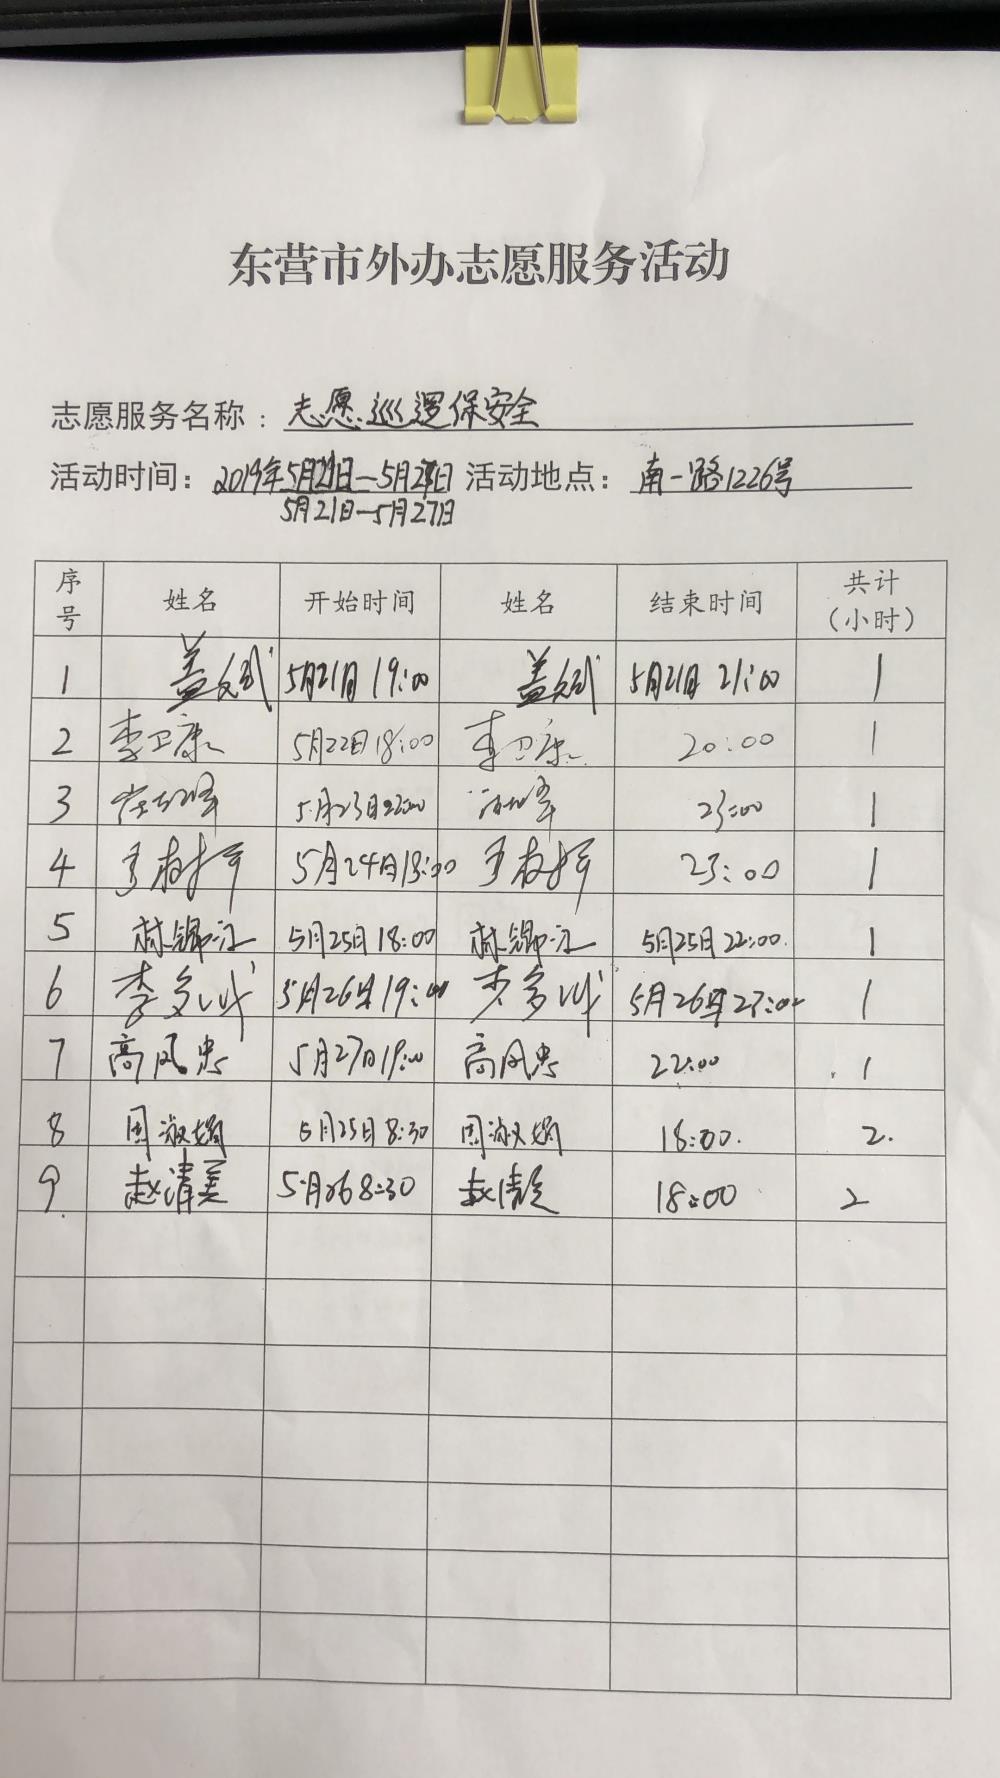 东营市外办志愿服务活动
志愿服务名称：志愿巡逻保安全
活动时间：2019年5月21日—5月27日 活动地点：南一路1226号
5月21日—5月27日
序号 姓名 开始时间 姓名 结束时间 共计（小时）
1 盖文斌 5月21日 19:00 盖文斌 5月21日 21:00 1
2 李卫康 5月22日18:00 李卫康 20:00 1
3 5月23日22:00 23:00 1
4 5月24日18:00 23:00 1
5 5月25日18:00 5月25日22:00. 1
6 李 5月26日19:00 李 1
7 高风忠 5月27日19:00 高风忠 22:00 1
8 周淑娟 5月25日8:30 周淑娟 18:00. 2.
9 赵清美 5月26 8:30 赵清美 18:00 2